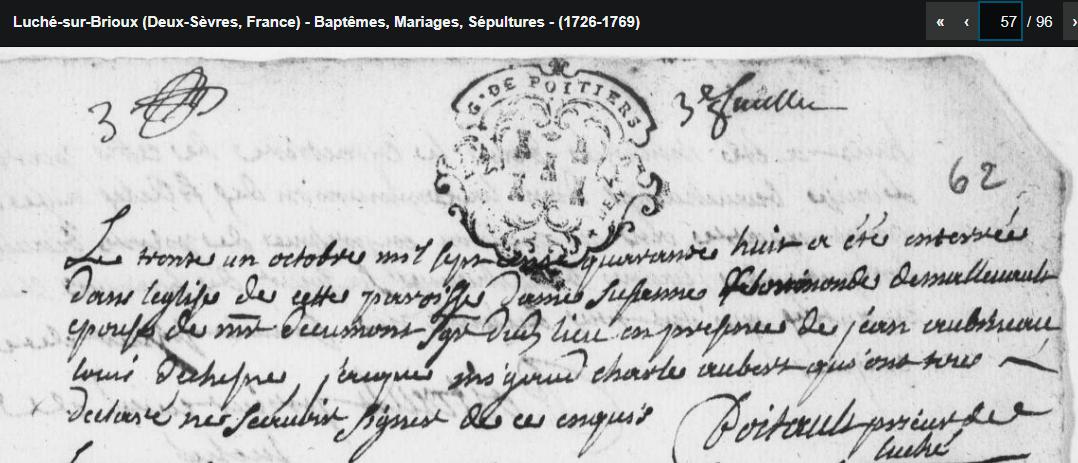 Luché-sur-Brioux (Deux-Sèvres, France) - Baptêmes, Mariages, Sépultures - (1726-1769)
« ‹ 57 / 96 ›
3
G. DE POITIERS
3e feuille
62
Le trente un octobre mil sept cents quarante huit a été enterrée
dans l'eglise de cette paroisse dame Susenne demallevault
epouse de mr deaumont sgr dud lieu en presence de jean aubineau
loui dechesne jacque charle aubert qui ont tous
declaré ne scavoir signer de ce enquis
Poitault prieur de
luché